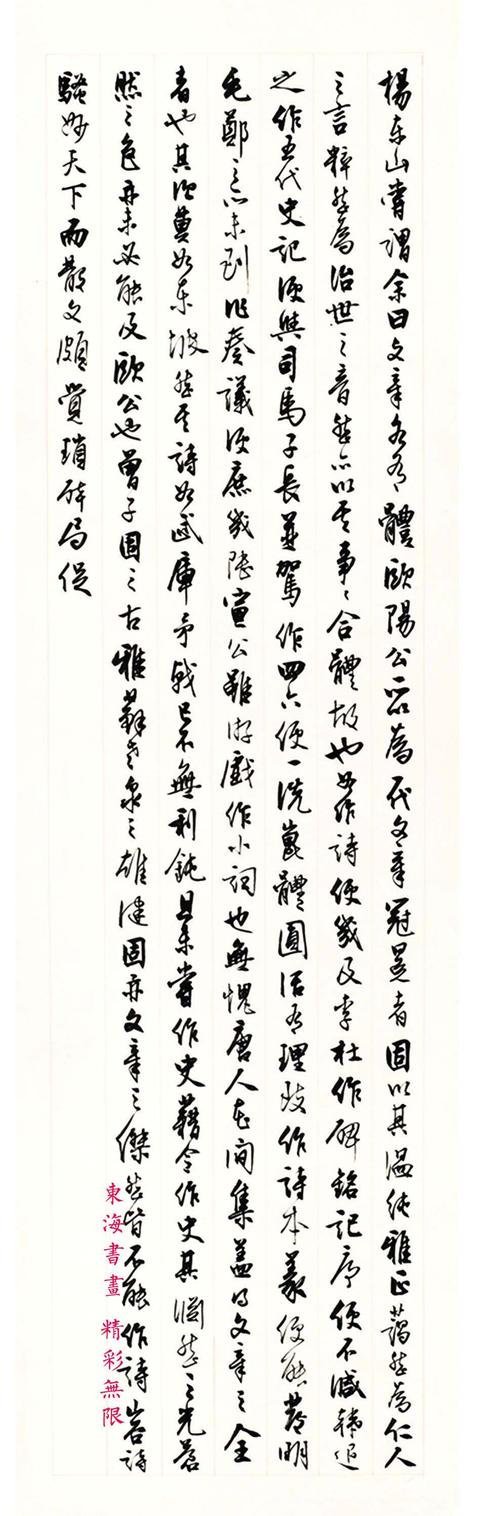 楊東山嘗謂余曰文章各有體歐陽公所為一代文章冠冕者固以其溫純雅正藹然為仁人
之言粹然為治世之音然亦以其事〻合體故也如作詩便幾及李杜作碑銘記序便不減韓退
之作五代史記便與司馬子長並駕作四六便一洗崑體圓活有理致作詩本義便能發明
毛鄭之所未到作奏議便庶幾陸宣公雖游戲作小詞也無愧唐人花間集蓋得文章之全
者也其次莫如東坡然其詩如武庫矛戟已不無利鈍且未嘗作史藉令作史其淵然之光蒼
然之色亦未必能及歐公也曾子固之古雅蘇老泉之雄健固亦文章之傑然皆不能作詩山谷詩
騷妙天下而散文頗覺瑣碎局促
東海書畫 精彩無限